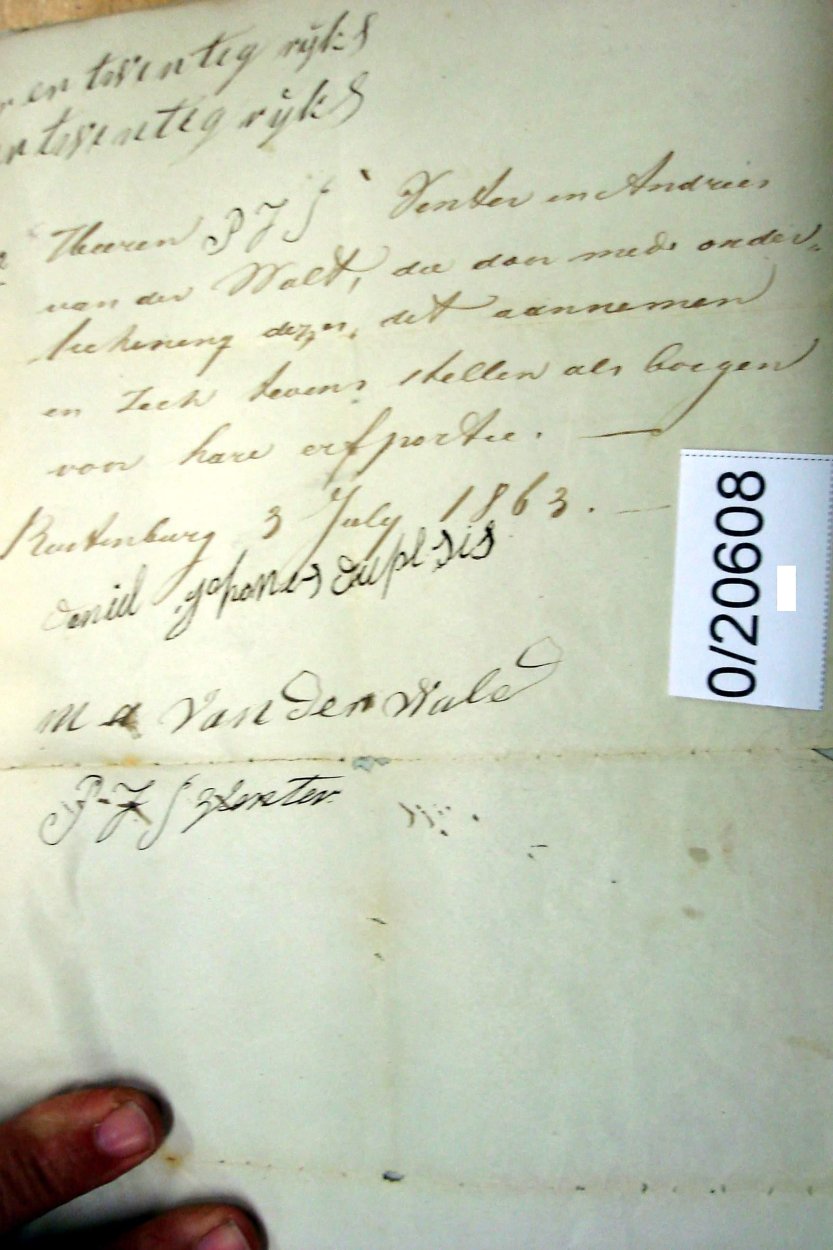 en twentig rijks
twentig rijks
Heeren P J S Venter en Andries
van der Walt, die door mede onder-
teekening dezes, dit aannemen
en zich tevens stellen als borgen
voor hare erfportie. —
Rustenburg 3 July 1863. —
Daniel Johanes duplsis
M a Van Der Wald
P. J S Venter
0/20608